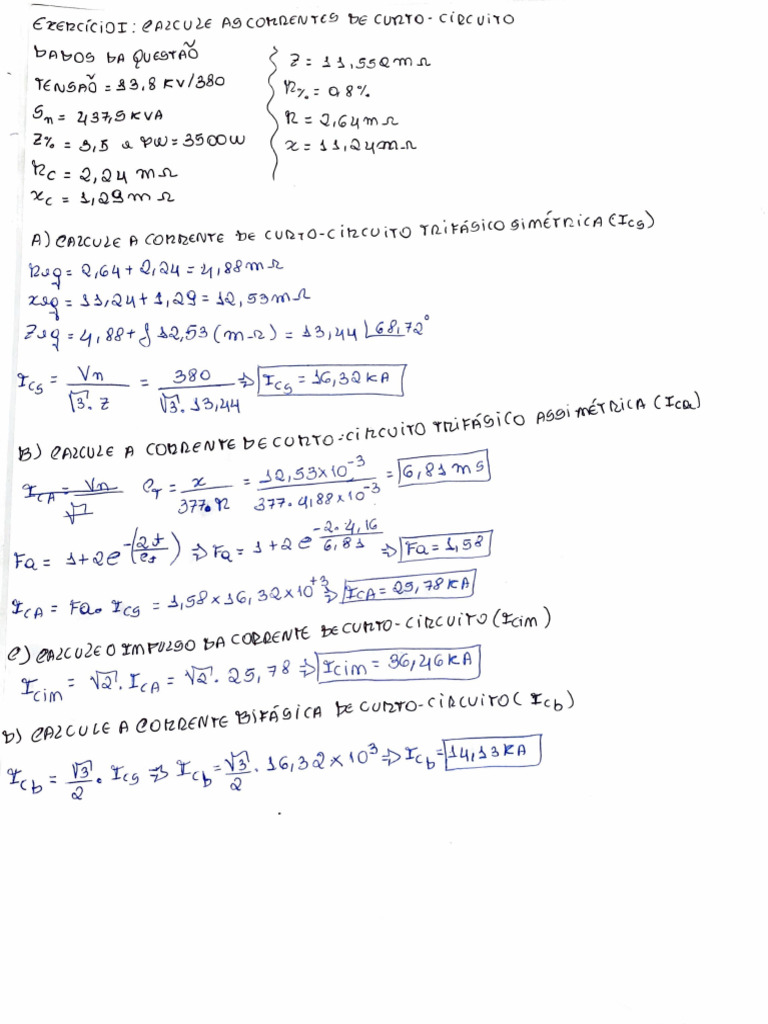 EXERCÍCIO I: CALCULE AS CORRENTES DE CURTO-CIRCUITO
DADOS DA QUESTÃO
TENSÃO = 13,8 KV/380
Sn = 437,5 KVA
Z% = 3,5 e PW = 3500W
Rc = 2,24 mΩ
xc = 1,29 mΩ
Z = 11,552 mΩ
R% = 0,8%
R = 2,64 mΩ
x = 11,24 mΩ
A) CALCULE A CORRENTE DE CURTO-CIRCUITO TRIFÁSICO SIMÉTRICA (Ics)
Req = 2,64 + 2,24 = 4,88 mΩ
xeq = 11,24 + 1,29 = 12,53 mΩ
Zeq = 4,88 + j 12,53 (mΩ) = 13,44 ∠68,72°
Ics = Vn/√3.Z = 380/√3.13,44 => Ics = 16,32 KA
B) CALCULE A CORRENTE DE CURTO-CIRCUITO TRIFÁSICO ASSIMÉTRICA (Ica)
ICA = Vn/√ CT = x/377.R = 12,53x10^-3/377.4,88x10^-3 = 6,81 ms
Fa = 1+2e^-(2t/Ct) => Fa = 1+2e^-2.4,16/6,81 => Fa = 1,58
ICA = Fa. Ics = 1,58 x 16,32 x 10^+3 => ICA = 25,78 KA
C) CALCULE O IMPULSO DA CORRENTE DE CURTO-CIRCUITO (Icim)
Icim = √2.ICA = √2.25,78 => Icim = 36,46 KA
D) CALCULE A CORRENTE BIFÁSICA DE CURTO-CIRCUITO (Icb)
Icb = √3/2 . Ics => Icb = √3/2 . 16,32 x 10^3 => Icb = 14,13 KA